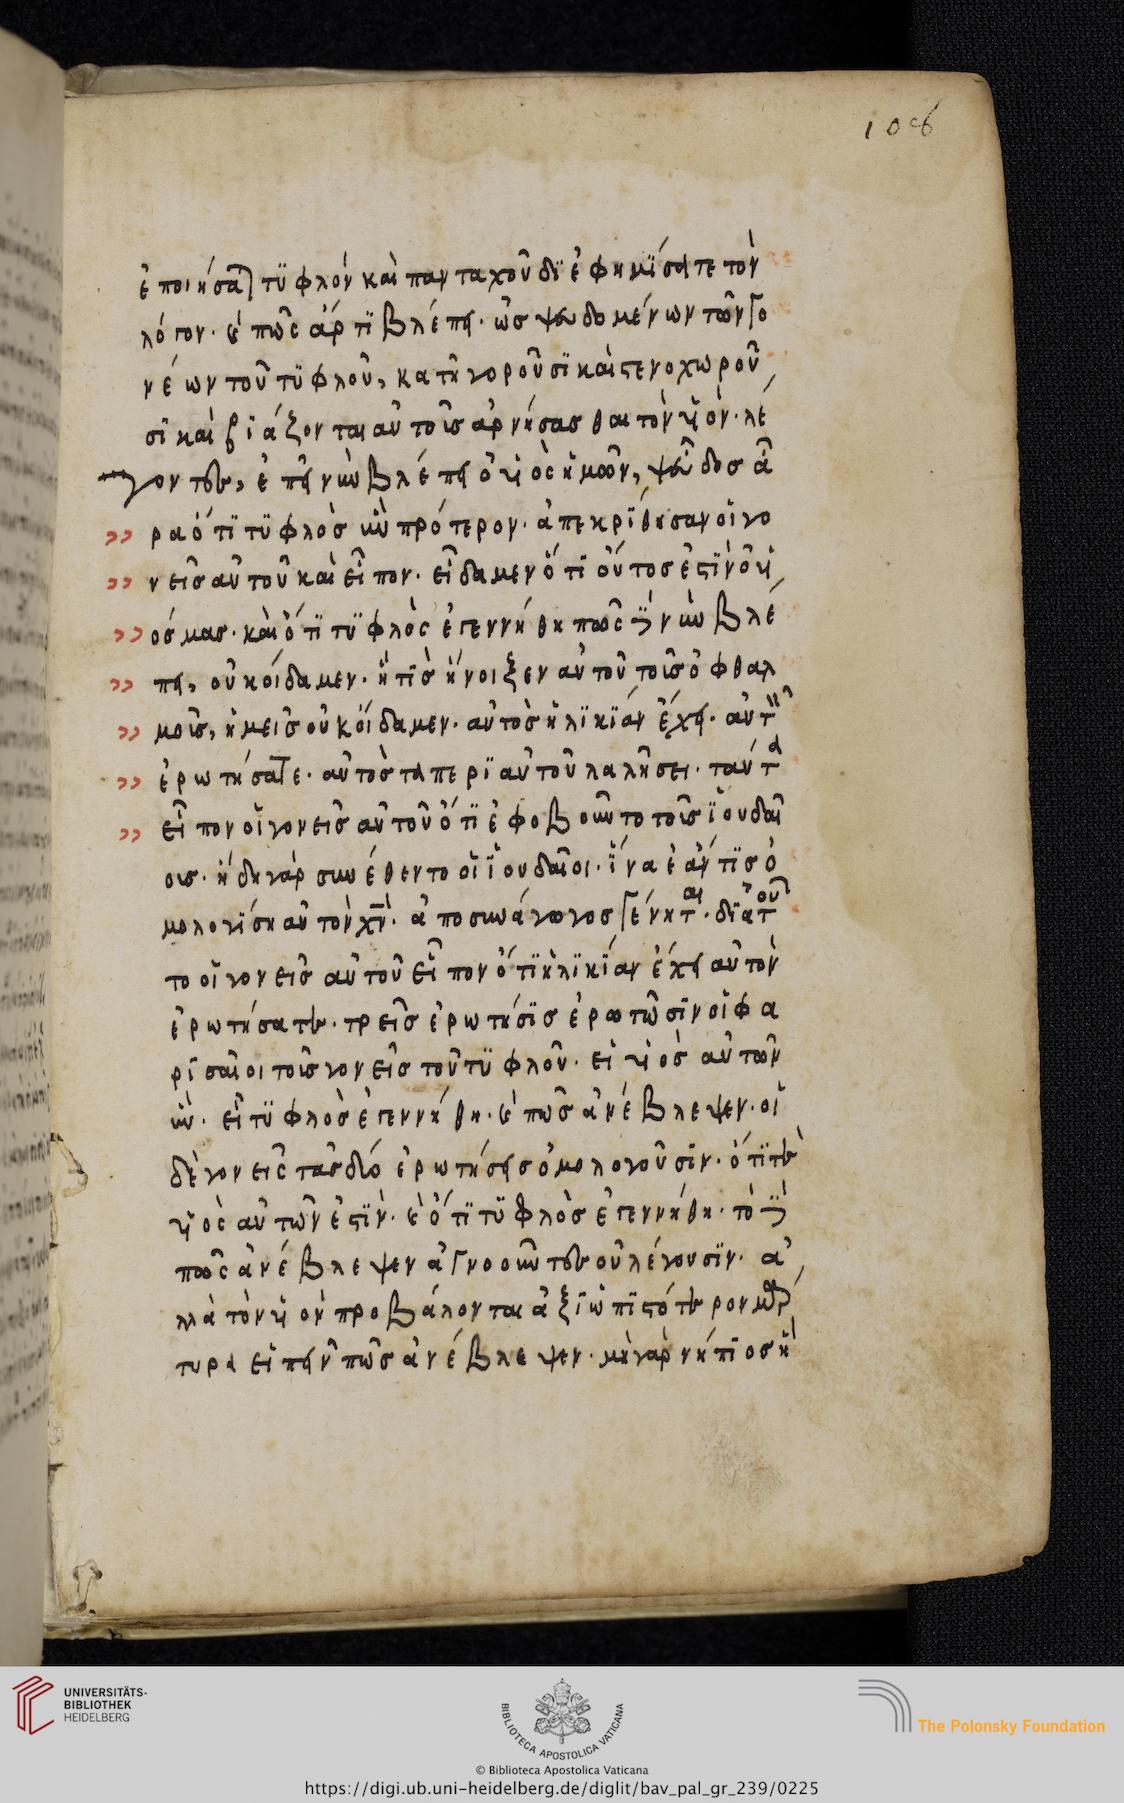 108
ἐποιήσατε τϋφλόν καὶ πανταχοῦ δϊεφημΐσατε τὸν
λόγον· καὶ πῶς άρτϊ βλέπει· ὡς ψευδομένων τῶν γο
νέων τοῦ τϋφλοῦ, κατηγοροῦσϊ καὶ στενοχωροῦ
σϊ καὶ βϊάζονται αὐτοῖς ἀρνήσασθαι τὸν υἱὸν· λέ
γοντες, ἐπεὶ νῦν βλέπει ὁ υἱὸς ἡμῶν, ψεῦδος ἆ
ρα ὅτϊ τϋφλὸς ἦν πρότερον· ἀπεκρΐθησαν οἱ γο
νεῖς αὐτοῦ καὶ εἶπον· εἴδαμεν ὅτϊ οὗτος ἐστϊν ὁ υἱ
ός μας· καὶ ὅτϊ τϋφλὸς ἐγεννήθη πῶς δὲ νῦν βλέ
πει, οὐκ οίδαμεν· ἢ τϊς ἤνοιξεν αὐτοῦ τοῖς ὀφθαλ
μοῖς, ἡμεῖς οὐκ οίδαμεν· αὐτὸς ἡλϊκϊαν έχει· αὐτὸν
ἐρωτήσατε· αὐτὸς τὰ περϊ αὐτοῦ λαλήσει· ταύτα
εἶπον οἱ γονεῖς αὐτοῦ ὅτϊ ἐφοβοῦντο τοῖς ϊουδαί
οις· ήδη γὰρ συνέθεντο οἱ ϊουδαῖοι· ΐνα ἐάν τϊς ὁ
μολογϊση αὐτὸν χν̅· ἀποσυνάγωγος γένηται· δϊα τοῦ
το οἱ γονεῖς αὐτοῦ εἶπον ὅτϊ ἡλϊκϊαν έχει αὐτὸν
ἐρωτήσατε· τρεῖς ἐρωτήσϊς ἐρωτῶσϊν οἱ φα
ρϊσαῖοι τοῖς γονεῖς τοῦ τϋφλοῦ· εἰ υἱὸς αὐτῶν
ἦν· εἰ τϋφλὸς ἐγεννήθη· καὶ πῶς ἀνέβλεψεν· οἱ
δὲ γονεῖς τὰς δύο ἐρωτήσεις ὁμολογοῦσϊν· ὅτϊ τε
υἱὸς αὐτῶν ἐστϊν· καὶ ὅτϊ τϋφλὸς ἐγεννήθη· τὸ δὲ
πῶς ἀνέβλεψεν ἀγνοοῦντες οὐ λέγουσϊν· ἀ
λλὰ τὸν υἱὸν προβάλονται ἀξϊωπϊστότερον μάρ
τυρα εἰπεῖν πῶς ἀνέβλεψεν· μὴ γὰρ νήπϊος ἢ
UNIVERSITÄTS-
BIBLIOTHEK
HEIDELBERG
BIBLIOTECA APOSTOLICA VATICANA
The Polonsky Foundation
© Biblioteca Apostolica Vaticana
https://digi.ub.uni-heidelberg.de/diglit/bav_pal_gr_239/0225